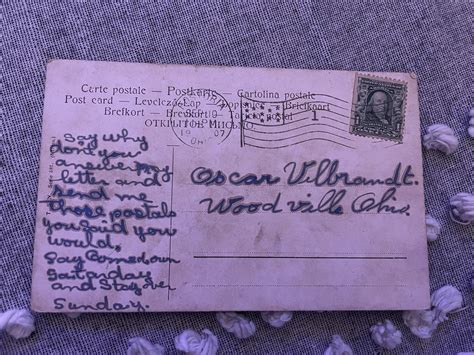 Carte postale — Postkarte — Cartolina postale
Post card — Levelező-Lap — Dopisnice — Briefkaart
Brefkort — Brevkort — Tarjeta postal
ОТКРЫТОЕ ПИСЬМО.
19 07
1
Say Why
dont you
my
letter and
send me
those postals
you said you
would,
Say Come down
Saturday
and Stay over
Sunday.
Oscar
Woodville Ohio.